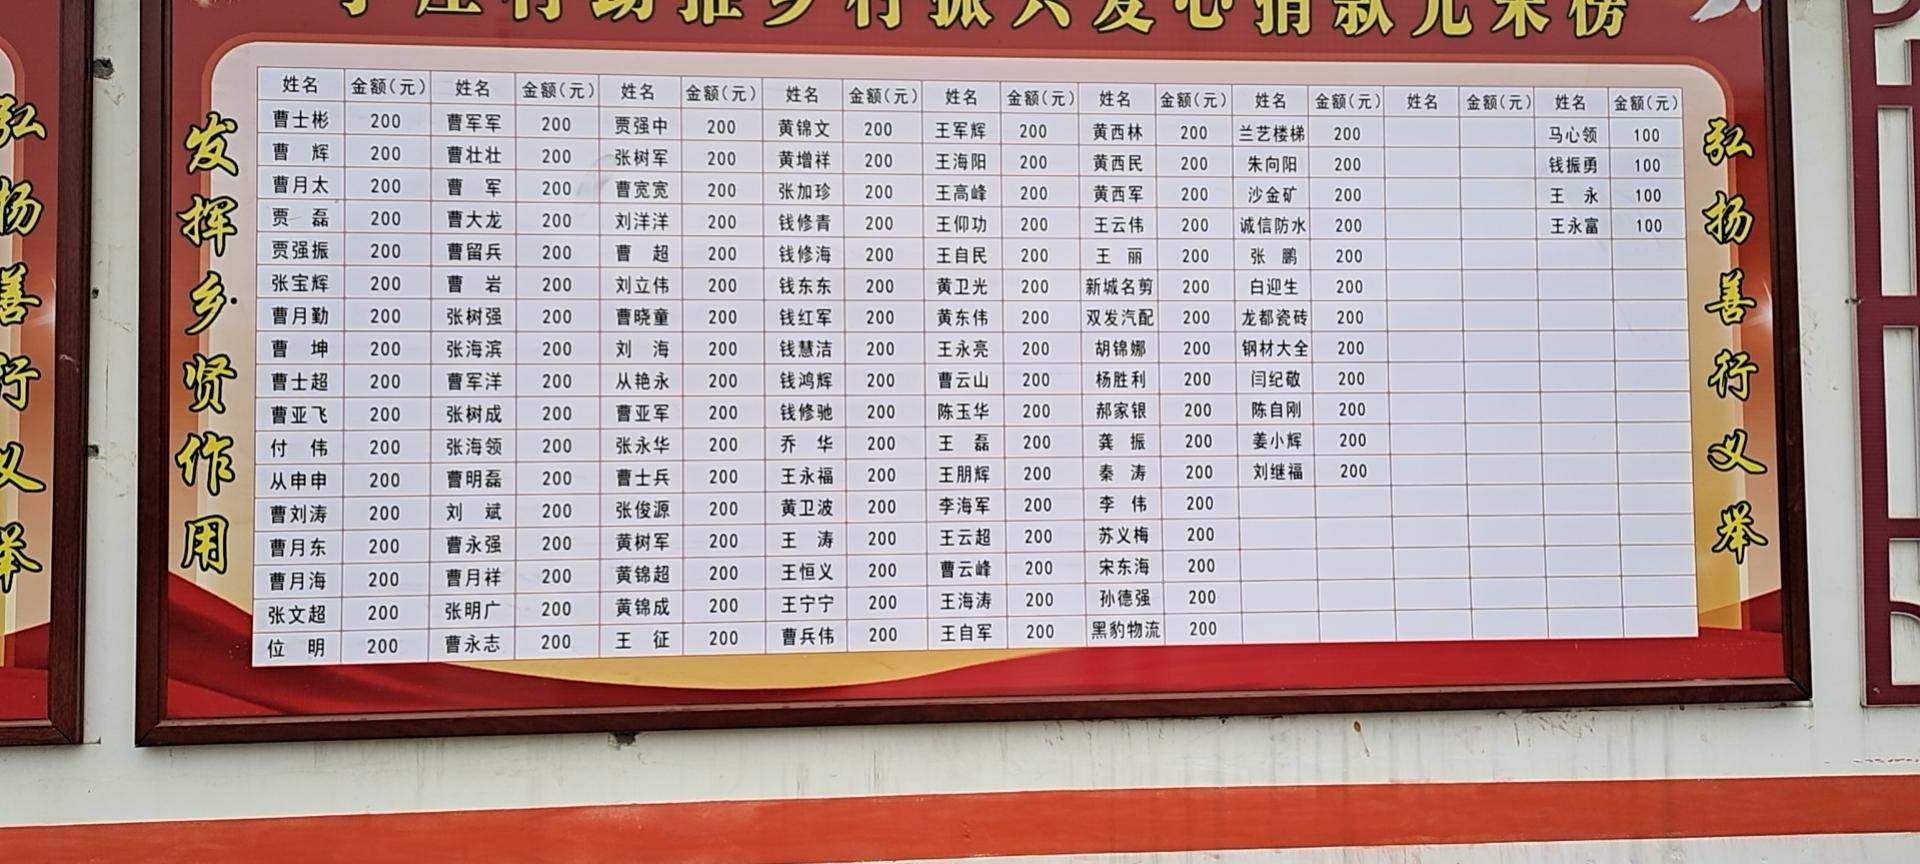 助推乡村振兴爱心捐款光荣榜
姓名 金额(元) 姓名 金额(元) 姓名 金额(元) 姓名 金额(元) 姓名 金额(元) 姓名 金额(元) 姓名 金额(元) 姓名 金额(元) 姓名 金额(元)
曹士彬 200 曹军军 200 贾强中 200 黄锦文 200 王军辉 200 黄西林 200 兰艺楼梯 200 马心领 100
曹 辉 200 曹壮壮 200 张树军 200 黄增祥 200 王海阳 200 黄西民 200 朱向阳 200 钱振勇 100
曹月太 200 曹 军 200 曹宽宽 200 张加珍 200 王高峰 200 黄西军 200 沙金矿 200 王 永 100
贾 磊 200 曹大龙 200 刘洋洋 200 钱修青 200 王仰功 200 王云伟 200 诚信防水 200 王永富 100
贾强振 200 曹留兵 200 曹 超 200 钱修海 200 王自民 200 王 丽 200 张 鹏 200
张宝辉 200 曹 岩 200 刘立伟 200 钱东东 200 黄卫光 200 新城名剪 200 白迎生 200
曹月勤 200 张树强 200 曹晓童 200 钱红军 200 黄东伟 200 双发汽配 200 龙都瓷砖 200
曹 坤 200 张海滨 200 刘 海 200 钱慧洁 200 王永亮 200 胡锦娜 200 钢材大全 200
曹士超 200 曹军洋 200 从艳永 200 钱鸿辉 200 曹云山 200 杨胜利 200 闫纪敬 200
曹亚飞 200 张树成 200 曹亚军 200 钱修驰 200 陈玉华 200 郝家银 200 陈自刚 200
付 伟 200 张海领 200 张永华 200 乔 华 200 王 磊 200 龚 振 200 姜小辉 200
从申申 200 曹明磊 200 曹士兵 200 王永福 200 王朋辉 200 秦 涛 200 刘继福 200
曹刘涛 200 刘 斌 200 张俊源 200 黄卫波 200 李海军 200 李 伟 200
曹月东 200 曹永强 200 黄树军 200 王 涛 200 王云超 200 苏义梅 200
曹月海 200 曹月祥 200 黄锦超 200 王恒义 200 曹云峰 200 宋东海 200
张文超 200 张明广 200 黄锦成 200 王宁宁 200 王海涛 200 孙德强 200
位 明 200 曹永志 200 王 征 200 曹兵伟 200 王自军 200 黑豹物流 200
发挥乡贤作用
弘扬善行义举
弘扬善行义举